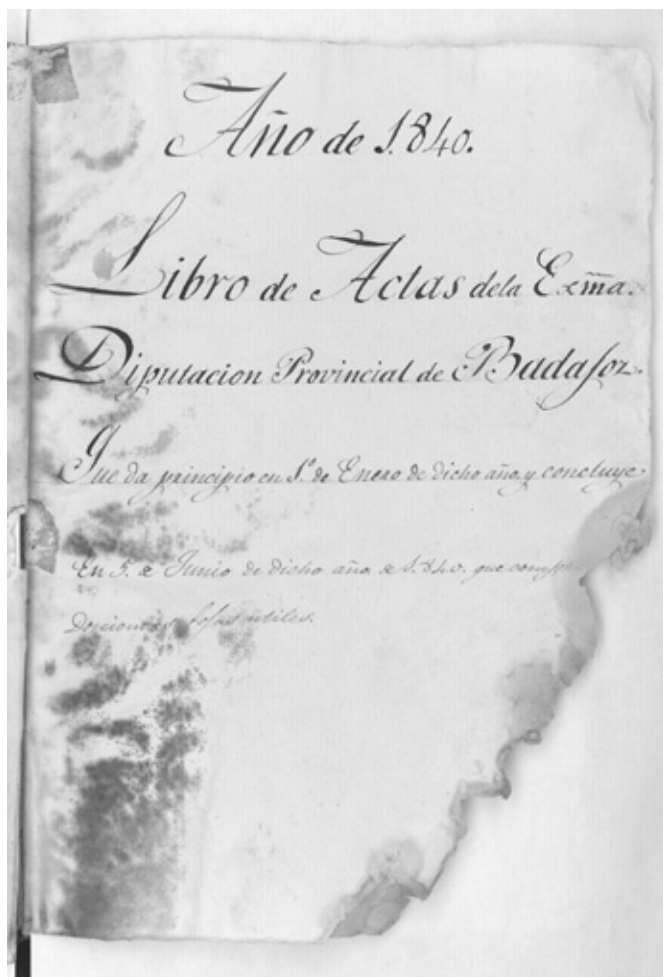 Año de 1.840.
Libro de Actas dela Exm̃a.
Diputacion Provincial de Badajoz.
Que da principio en 1.º de Enero de dicho año, y concluye
En 5. de Junio de dicho año de 1.840. que
Doscientas fojas utiles.